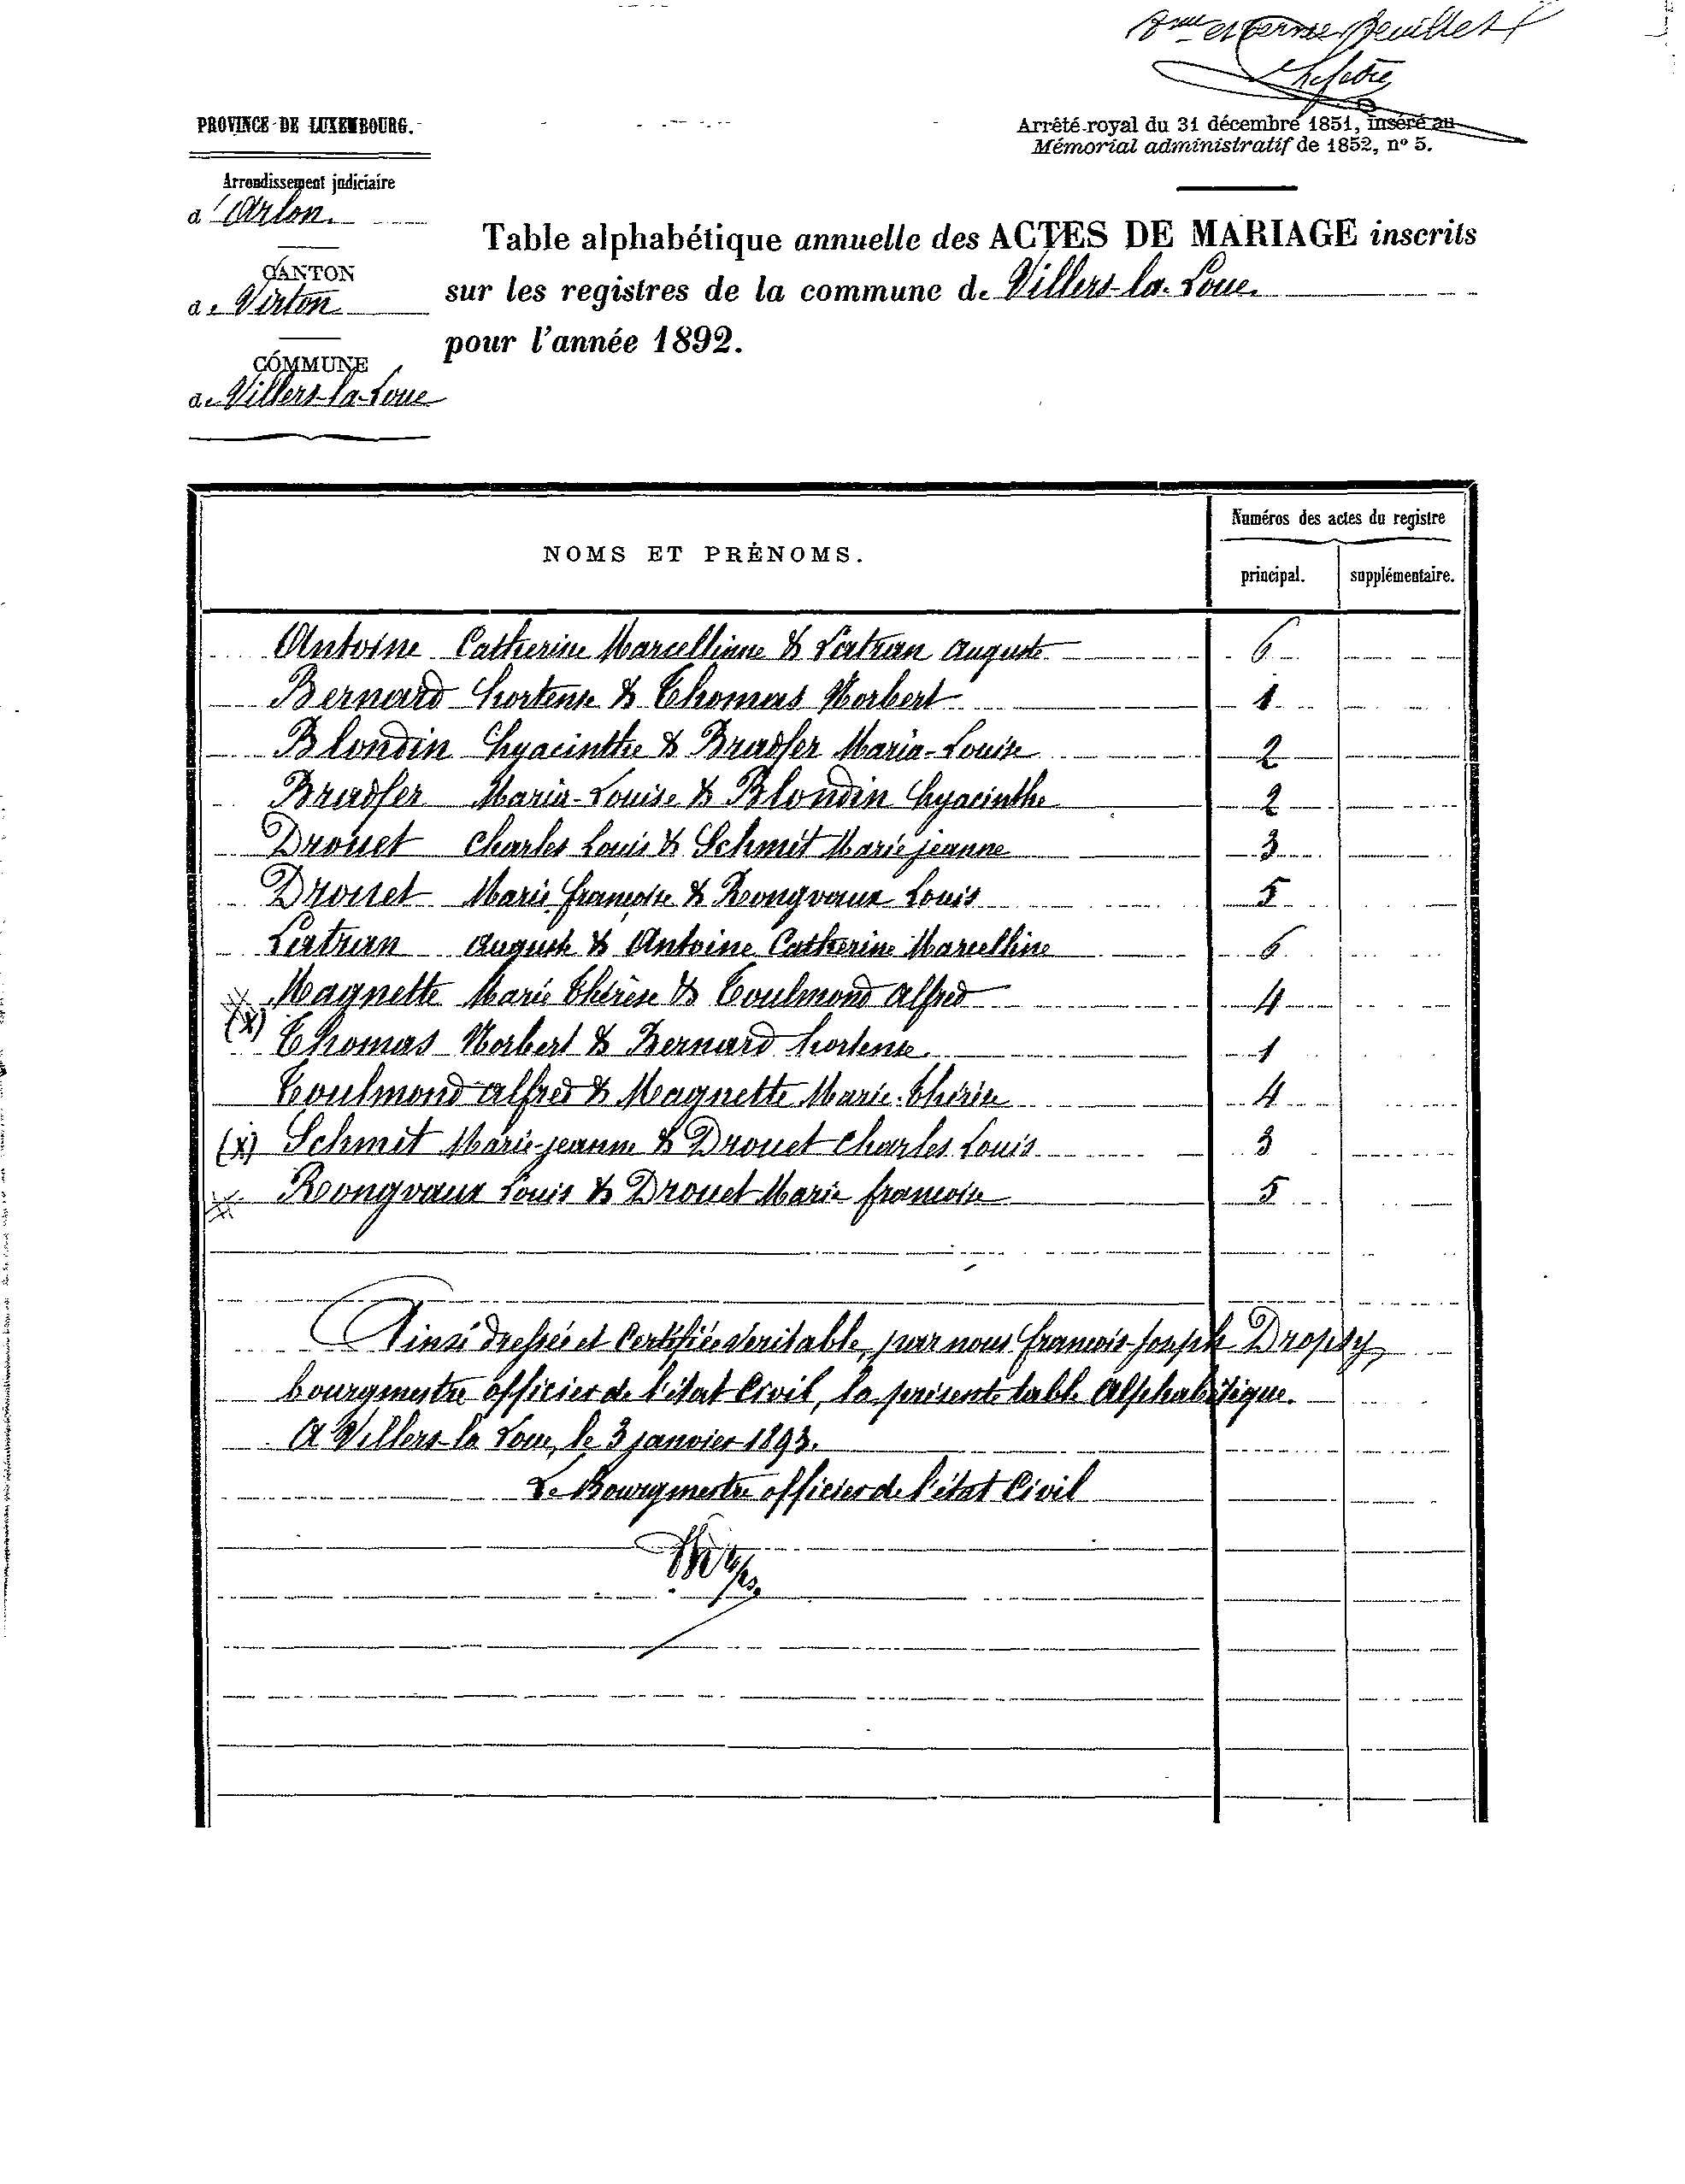 8me et dernier feuillet
PROVINCE DE LUXEMBOURG.
Arrêté royal du 31 décembre 1851, inséré au
Mémorial administratif de 1852, no 5.
Arrondissement judiciaire
d'Arlon.
CANTON
de Virton
COMMUNE
de Villers-la-Loue
Table alphabétique annuelle des ACTES DE MARIAGE inscrits
sur les registres de la commune de Villers-la-Loue
pour l'année 1892.
NOMS ET PRÉNOMS.
Numéros des actes du registre
principal. supplémentaire.
Antoine Catherine Marcellinne & Latran auguste 6
Bernard hortense & Thomas Norbert 1
Blondin hyacinthe & Bradfer Maria-Louise 2
Bradfer Maria-Louise & Blondin hyacinthe 2
Drouet Charles Louis & Schmit Marie jeanne 3
Drouet Marie françoise & Rongvaux Louis 5
Latran auguste & Antoine Catherine Marcelline 6
Magnette Marie thérèse & Toulmond alfred 4
(x) Thomas Norbert & Bernard hortense 1
Toulmond alfred & Magnette Marie-thérèse 4
(x) Schmit Marie-jeanne & Drouet Charles Louis 3
Rongvaux Louis & Drouet Marie francoise 5
Ainsi dressée et Certifiée véritable, par nous françois-joseph Dropsy,
bourgmestre officier de l'état Civil, la présente table Alphabétique.
A Villers-la Loue, le 3 janvier 1893.
Le Bourgmestre officier de l'état Civil